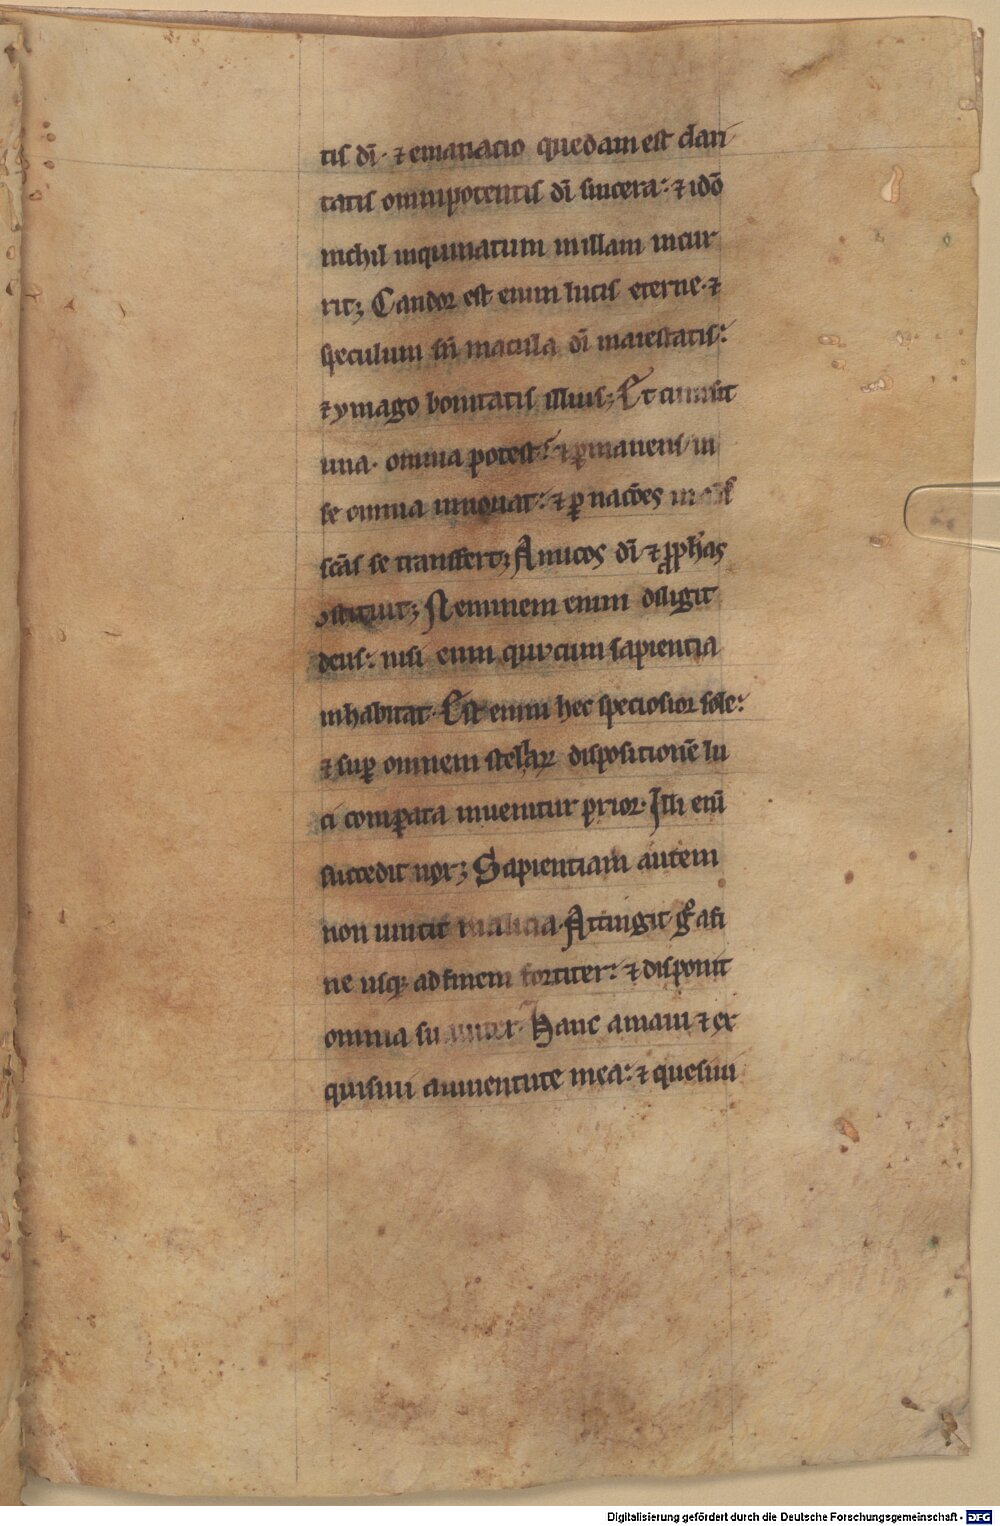 tis dī· ⁊ emanacio quedam est clari
tatis omnipotentis dī sincera: ⁊ idō
nichil inquinatum in illam incur
rit; Candor est enim lucis eterne· ⁊
speculum sn̄ macula dī maiestatis:
⁊ ymago bonitatis illius; Et cum sit
una· omnia potest: ⁊ ꝑmanens in
se omnia innouat: ⁊ ꝑ nacōes in
scās se transfert; Amicos dī ⁊ ꝓph̄as
ꝯstituit; Neminem enim diligit
deus: nisi eum qui cum sapientia
inhabitat· Est enim hec speciosior sole:
⁊ suꝑ omnem stellaꝝ dispositionē lu
ci comꝑata inuenitur prior· Illi enī
succedit nox; Sapientiam autem
non uincit malicia· Attingit gͦ a fi
ne usqꝫ ad finem fortiter: ⁊ disponit
omnia suauiter· Hanc amaui ⁊ ex
quisiui a iuuentute mea: ⁊ quesiui
Digitalisierung gefördert durch die Deutsche Forschungsgemeinschaft - DFG